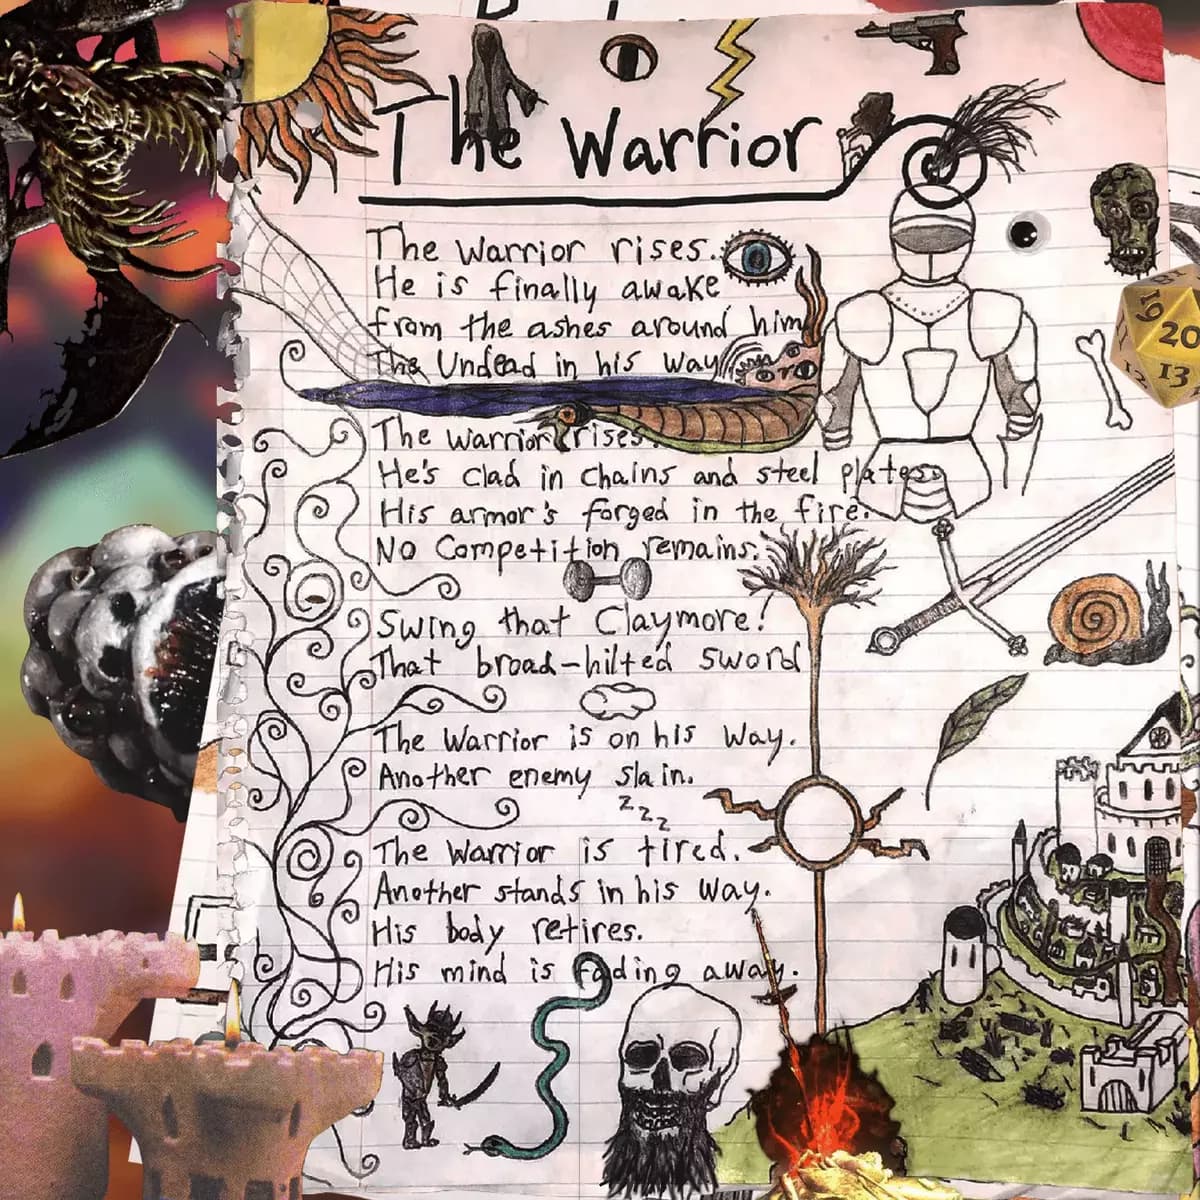 The Warrior
The Warrior rises.
He is finally awake
from the ashes around him
The Undead in his way
The Warrior rises.
He's Clad in Chains and steel plates
His armor's forged in the fire.
No Competition remains.
Swing that Claymore!
That broad-hilted sword
The Warrior is on his way.
Another enemy slain.
z z z
The Warrior is tired.
Another stands in his way.
His body retires.
His mind is fading away.
19
20
13
12